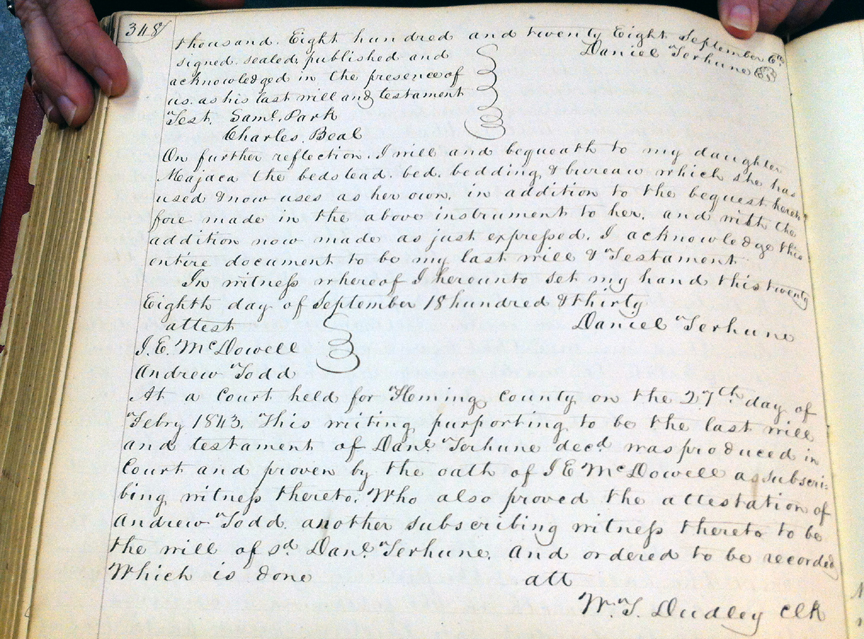 348
thousand. Eight hundred and twenty Eight September 6th
signed, sealed, published and Daniel Terhune
acknowledged in the presence of
us. as his last will and testament
Test. Saml. Park
Charles. Beal
On further reflection. I will and bequeath to my daughter
Majaca the bedstead. bed. bedding, & bureau which she has
used & now uses as her own, in addition to the bequest hereto
fore made in the above instrument to her, and with the
addition now made as just expressed. I acknowledge this
entire document to be my last will & Testament
In witness whereof I hereunto set my hand this twenty
Eighth day of September 18 hundred & thirty
attest Daniel Terhune
J. E. McDowell
Andrew Todd
At a Court held for Fleming County on the 27th day of
Feby 1843. This writing purporting to be the last will
and testament of Danl. Terhune decd. was produced in
Court and proven by the oath of J E McDowell a subscri-
bing witness thereto, Who also proved the attestation of
Andrew Todd. another subscribing witness thereto to be
the will of sd. Danl. Terhune. And ordered to be recorded
Which is done att
W. T. Dudley Clk